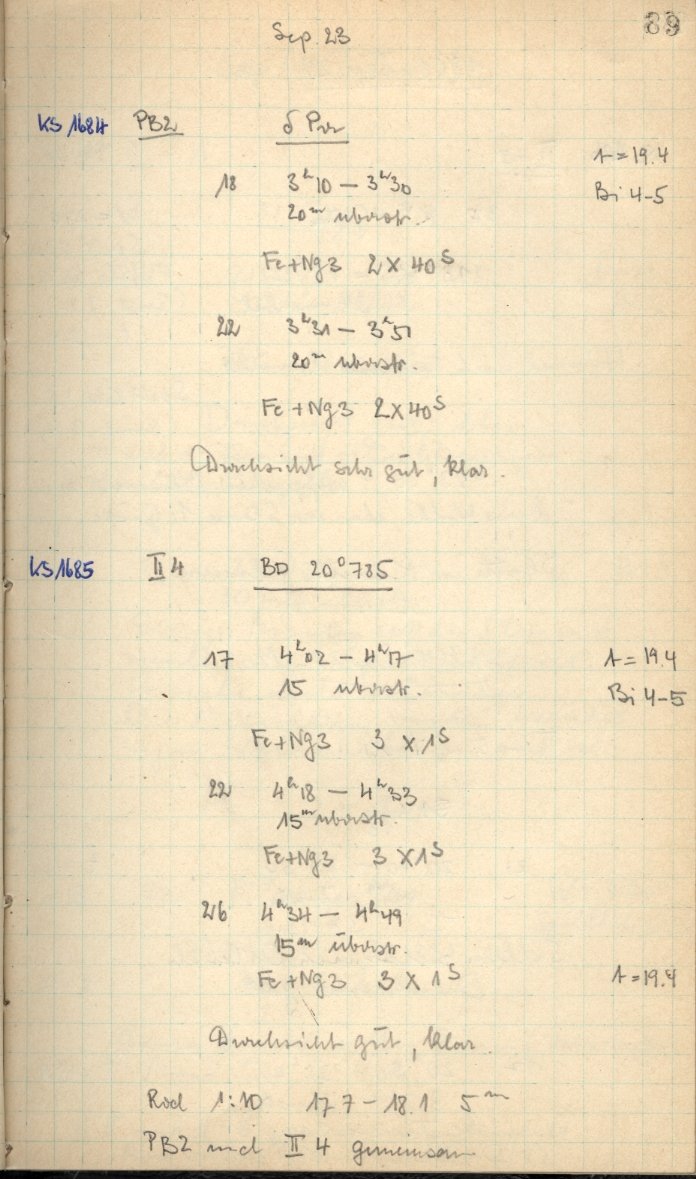 89
Sep. 23
KS 1684 PB2 δ Per
t = 19.4
18 3ʰ10 – 3ʰ30 Bi 4-5
20ᵐ überstr.
Fe+Ng3 2 X 40ˢ
22 3ʰ31 – 3ʰ51
20ᵐ überstr.
Fe+Ng3 2X40ˢ
Durchsicht sehr gut, klar.
KS 1685 II 4 BD 20°785
17 4ʰ02 – 4ʰ17 t = 19.4
15 überstr. Bi 4-5
Fe+Ng3 3 X 1ˢ
22 4ʰ18 – 4ʰ33
15ᵐ überstr.
Fe+Ng3 3 X 1ˢ
26 4ʰ34 – 4ʰ49
15ᵐ überstr.
Fe+Ng3 3 X 1ˢ t = 19.4
Durchsicht gut, klar
Rod 1:10 17.7 – 18.1 5ᵐ
PB2 und II 4 gemeinsam